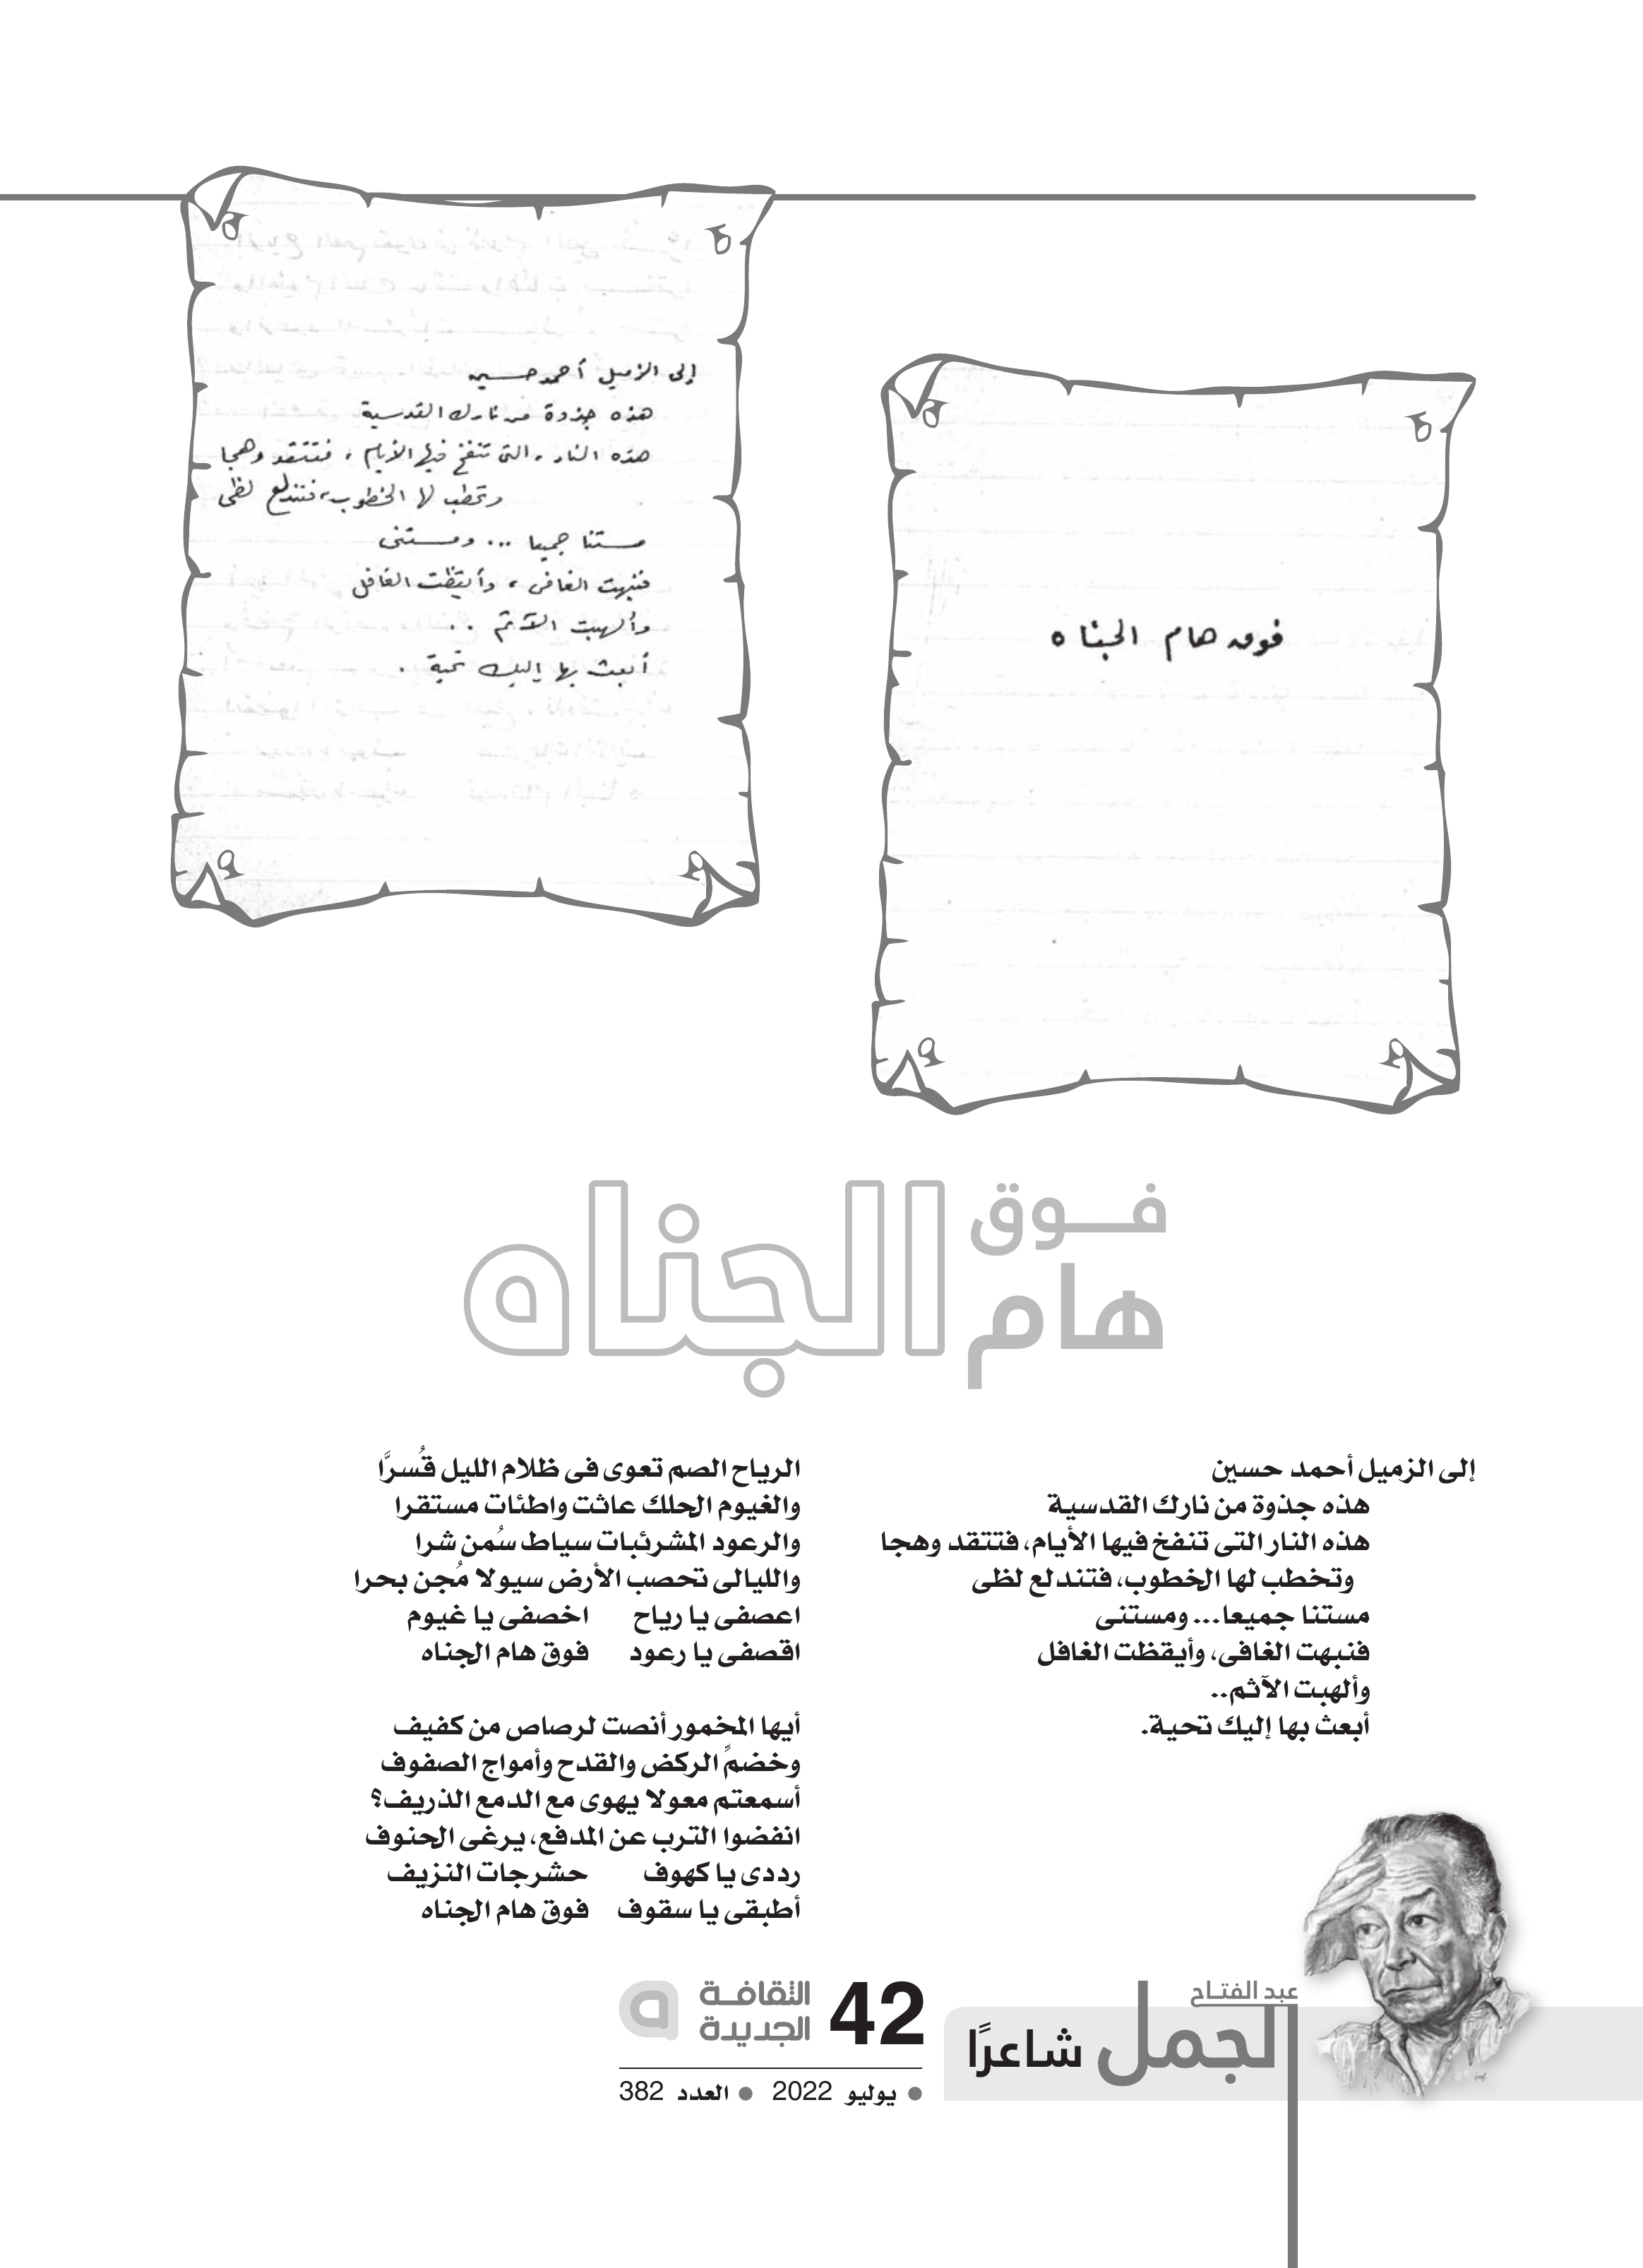 فوق هام الجناه
إلى الزميل أحمد حسين
هذه جذوة من نارك القدسية
هذه النار، التى تنفخ فيها الأيام، فتتقد وهجا
وتحطب لها الخطوب، فتندلع لظى
مستنا جميعا ... ومستنى
فنبهت الغافى، وأيقظت الغافل
وألهبت الآثم ..
أبعث بها إليك تحية .
فوق
هام الجناه
إلى الزميل أحمد حسين
هذه جذوة من نارك القدسية
هذه النار التى تنفخ فيها الأيام، فتتقد وهجا
وتخطب لها الخطوب، فتندلع لظى
مستنا جميعا... ومستنى
فنبهت الغافى، وأيقظت الغافل
وألهبت الآثم..
أبعث بها إليك تحية.
الرياح الصم تعوى فى ظلام الليل قُسرَّا
والغيوم الحلك عاثت واطئات مستقرا
والرعود المشرئبات سياط سُمن شرا
والليالى تحصب الأرض سيولا مُجن بحرا
اعصفى يا رياح اخصفى يا غيوم
اقصفى يا رعود فوق هام الجناه
أيها المخمور أنصت لرصاص من كفيف
وخضمِّ الركض والقدح وأمواج الصفوف
أسمعتم معولا يهوى مع الدمع الذريف؟
انفضوا الترب عن المدفع، يرغى الحنوف
رددى يا كهوف حشرجات النزيف
أطبقى يا سقوف فوق هام الجناه
عبد الفتاح
الجمل شاعرًا
42
الثقافة
الجديدة
• يوليو 2022 • العدد 382